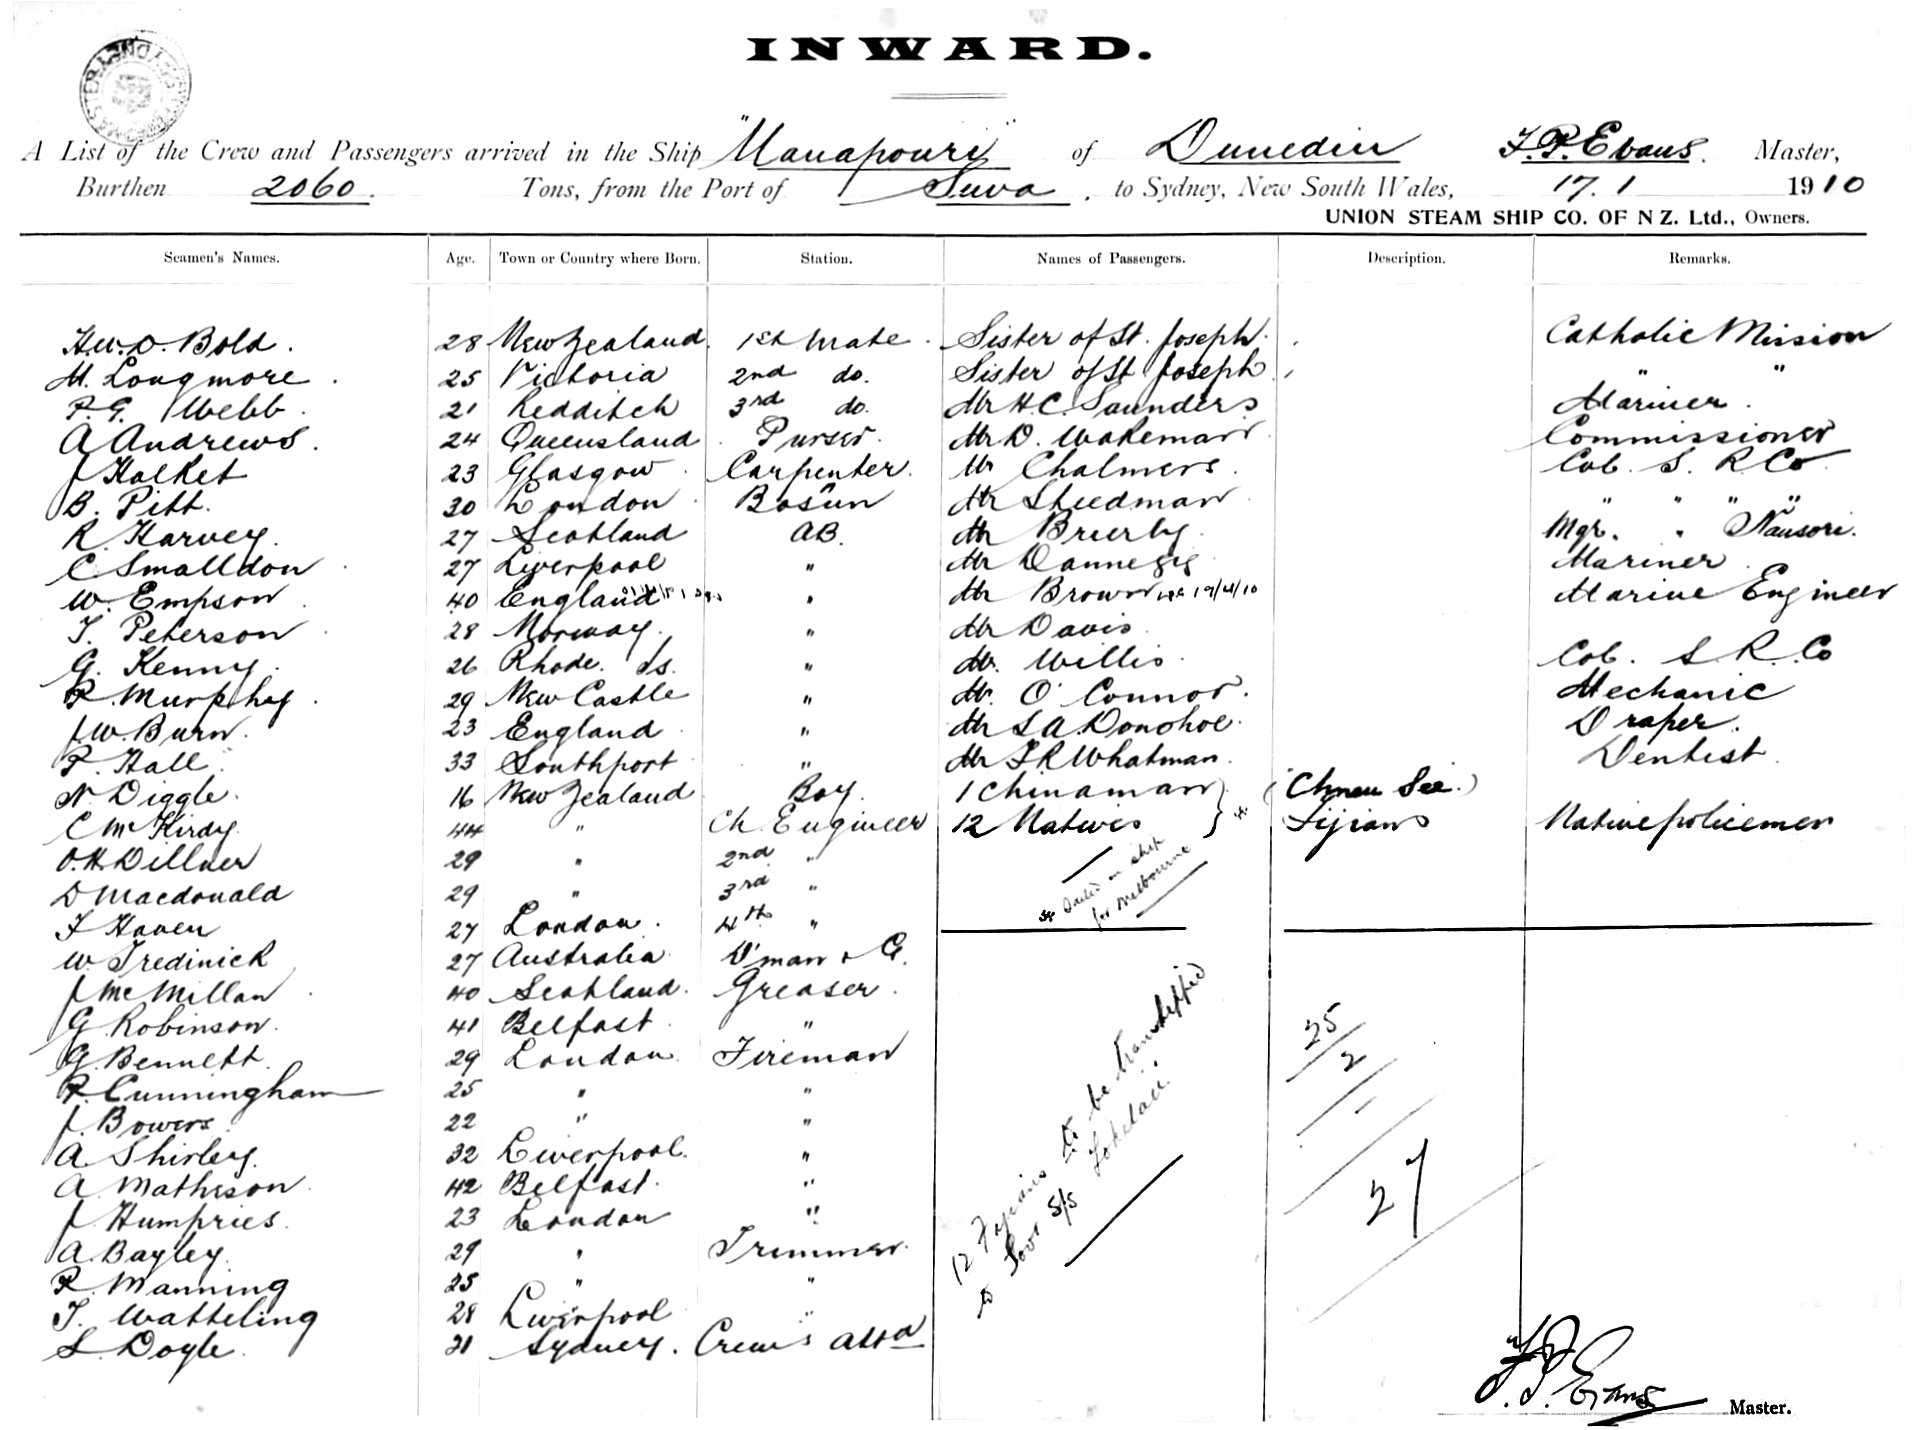 INWARD.
A List of the Crew and Passengers arrived in the Ship "Manapouri" of Dunedin F.P. Evans. Master,
Burthen 2060. Tons, from the Port of Suva, to Sydney, New South Wales, 17.1 1910
UNION STEAM SHIP CO. OF N Z. Ltd., Owners.
Seamen's Names. Age. Town or Country where Born. Station. Names of Passengers. Description. Remarks.
H.W.D. Bold. 28 New Zealand. 1st Mate. Sister of St. Joseph. Catholic Mission
M. Longmore. 25 Victoria 2nd do. Sister of St Joseph. " "
P.G. Webb. 21 Redditch 3rd do. Mr H.C. Saunders Mariner.
A Andrews. 24 Queensland Purser. Mr D. Wakeman Commissioner
J Halket 23 Glasgow Carpenter. Mr Chalmers. Col. S. R. Co
B. Pitt. 30 London Bosun Mr Steedman " " " "
R. Harvey. 27 Scotland AB. Mr Brierly Mgr. " Nausori.
C. Smalldon 27 Liverpool " Mr Mariner
W. Empson 40 England " Mr Brown 19/4/10 Marine Engineer
T. Peterson 28 Norway. " Mr Davis
G. Kenny. 26 Rhode. Is. " Mr. Willis Col. S. R. Co
P. Murphy 29 New Castle " Mr. O'Connor. Mechanic
J.W. Burn. 23 England " Mr S.A. Donohoe. Draper.
P. Hall 33 Southport " Mr F R Whatman. Dentist
N. Diggle. 16 New Zealand Boy. 1 Chinaman ( See.)
C McKirdy. 44 " Ch. Engineer 12 Natives Fijians Native policemen
O.H. Dillner 29 " 2nd "
D Macdonald 29 " 3rd "
* on ship
for Melbourne
F Haven 27 London. 4th "
W. Tredinick 27 Australia D'man & G.
J McMillan 40 Scotland. Greaser.
G Robinson. 41 Belfast. "
G. Bennett. 29 London. Fireman
P. Cunningham 25 " "
J. Bowers 22 " "
A. Shirley. 32 Liverpool. "
A. Matheson 42 Belfast. "
J. Humphries. 23 London "
A. Bayley. 29 " Trimmer.
R. Manning 25 " "
T. Watteling 28 Liverpool "
S. Doyle. 21 Sydney. Crew's Attd
12 Fijians to be transhipped
to S/S
25
2
27
F.P. Evans Master.